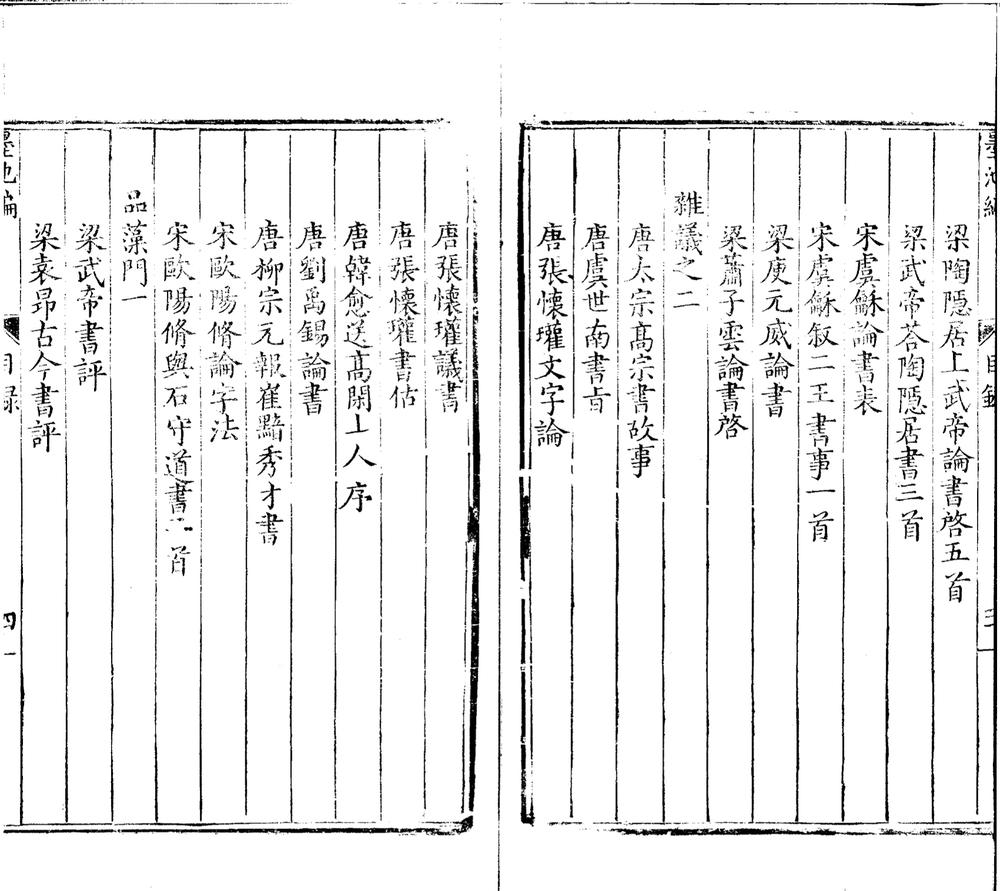 墨池編
目錄
三
梁陶隱居上武帝論書啓五首
梁武帝荅陶隱居書三首
宋虞龢論書表
宋虞龢叙二王書事一首
梁庾元威論書
梁蕭子雲論書啓
雜議之二
唐太宗高宗書故事
唐虞世南書旨
唐張懷瓘文字論
唐張懷瓘議書
唐張懷瓘書估
唐韓愈送高閑上人序
唐劉禹錫論書
唐柳宗元報崔黯秀才書
宋歐陽脩論字法
宋歐陽脩與石守道書二首
品藻門一
梁武帝書評
梁袁昂古今書評
墨池編
目錄
四